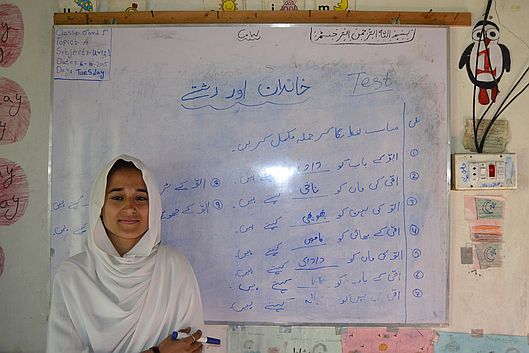 Class: 4 and 5
Topics: A
Subject: Urdu
Date: 6-10-2015
Day: Tuesday
بسم اللہ الرحمن الرحیم
Test
خاندان اور رشتے
مناسب لفظ لگا کر جملہ مکمل کریں۔
① ابو کے باپ کو دادا کہتے ہیں۔
② امی کی ماں کو نانی کہتے ہیں۔
③ ابو کی بہن کو پھوپھی کہتے ہیں۔
④ امی کے بھائی کو ماموں کہتے ہیں۔
⑤ ابو کی ماں کو دادی کہتے ہیں۔
⑥ امی کے باپ کو نانا کہتے ہیں۔
⑦ امی کی بہن کو خالہ کہتے ہیں۔
⑧ ابو کے
⑨ ابو کے چھوٹے